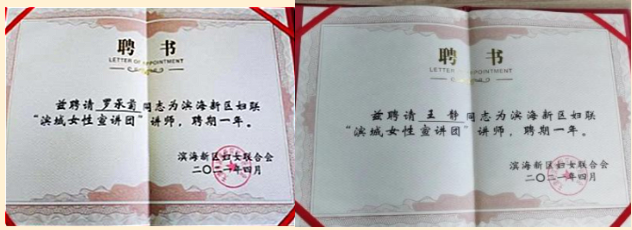 聘 书
LETTER OF APPOINTMENT
兹聘请 罗承前 同志为滨海新区妇联
“滨城女性宣讲团”讲师，聘期一年。
滨海新区妇女联合会
二〇二一年四月
聘 书
LETTER OF APPOINTMENT
兹聘请 王 静 同志为滨海新区妇联
“滨城女性宣讲团”讲师，聘期一年。
滨海新区妇女联合会
二〇二一年四月